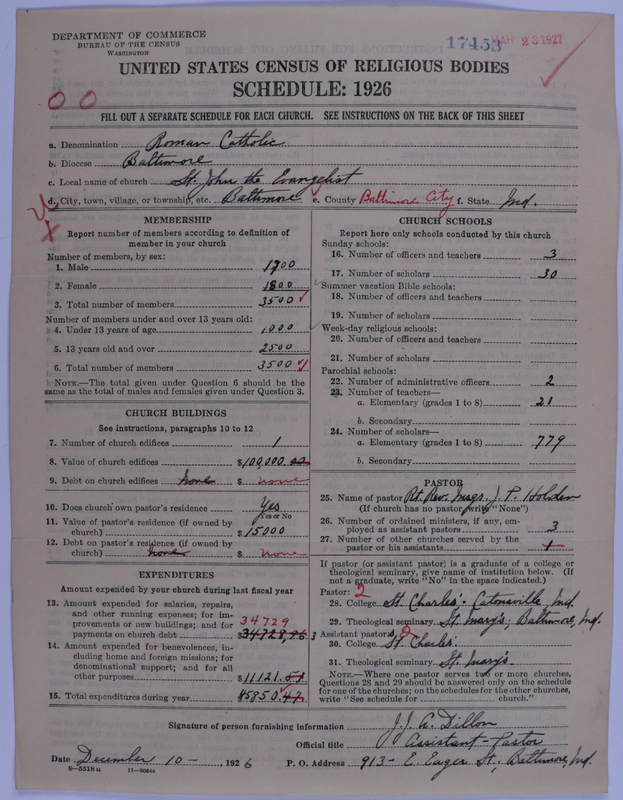 DEPARTMENT OF COMMERCE
BUREAU OF THE CENSUS
WASHINGTON
17453 MAR 23 1927
UNITED STATES CENSUS OF RELIGIOUS BODIES
SCHEDULE: 1926
0 0
FILL OUT A SEPARATE SCHEDULE FOR EACH CHURCH. SEE INSTRUCTIONS ON THE BACK OF THIS SHEET
a. Denomination Roman Catholic
b. Diocese Baltimore
c. Local name of church St. John the Evangelist
d. City, town, village, or township, etc. Baltimore e. County Baltimore City f. State Md.
MEMBERSHIP
Report number of members according to definition of
member in your church
Number of members, by sex:
1. Male 1700
2. Female 1800
3. Total number of members 3500
Number of members under and over 13 years old:
4. Under 13 years of age 1000
5. 13 years old and over 2500
6. Total number of members 3500
NOTE.—The total given under Question 6 should be the
same as the total of males and females given under Question 3.
CHURCH BUILDINGS
See instructions, paragraphs 10 to 12
7. Number of church edifices 1
8. Value of church edifices $100,000.00
9. Debt on church edifices none $ none
10. Does church own pastor's residence Yes
Yes or No
11. Value of pastor's residence (if owned by
church) $15000
12. Debt on pastor's residence (if owned by
church) none $ none
EXPENDITURES
Amount expended by your church during last fiscal year
13. Amount expended for salaries, repairs,
and other running expenses; for im-
provements or new buildings; and for 34729
payments on church debt $34728,96
14. Amount expended for benevolences, in-
cluding home and foreign missions; for
denominational support; and for all
other purposes $11121.51
15. Total expenditures during year $45850.47
CHURCH SCHOOLS
Report here only schools conducted by this church
Sunday schools:
16. Number of officers and teachers 3
17. Number of scholars 30
Summer vacation Bible schools:
18. Number of officers and teachers
19. Number of scholars
Week-day religious schools:
20. Number of officers and teachers
21. Number of scholars
Parochial schools:
22. Number of administrative officers 2
23. Number of teachers—
a. Elementary (grades 1 to 8) 21
b. Secondary
24. Number of scholars—
a. Elementary (grades 1 to 8) 779
b. Secondary
PASTOR
25. Name of pastor Rt. Rev. Msgr. J. P. Holden
(If church has no pastor, write "None")
26. Number of ordained ministers, if any, em-
ployed as assistant pastors 3
27. Number of other churches served by the
pastor or his assistants 1
If pastor (or assistant pastor) is a graduate of a college or
theological seminary, give name of institution below. (If
not a graduate, write "No" in the space indicated.)
Pastor: 2
28. College St. Charles'- Catonsville, Md.
29. Theological seminary St. Mary's; Baltimore, Md.
3 Assistant pastor: 2
30. College St. Charles'
31. Theological seminary St. Mary's
NOTE.—Where one pastor serves two or more churches,
Questions 28 and 29 should be answered only on the schedule
for one of the churches; on the schedules for the other churches,
write "See schedule for church."
Signature of person furnishing information J. J. A. Dillon
Official title Assistant-Pastor
Date December 10 -, 1926 P. O. Address 913- E. Eager St., Baltimore, Md.
8—5518a 11—4064a